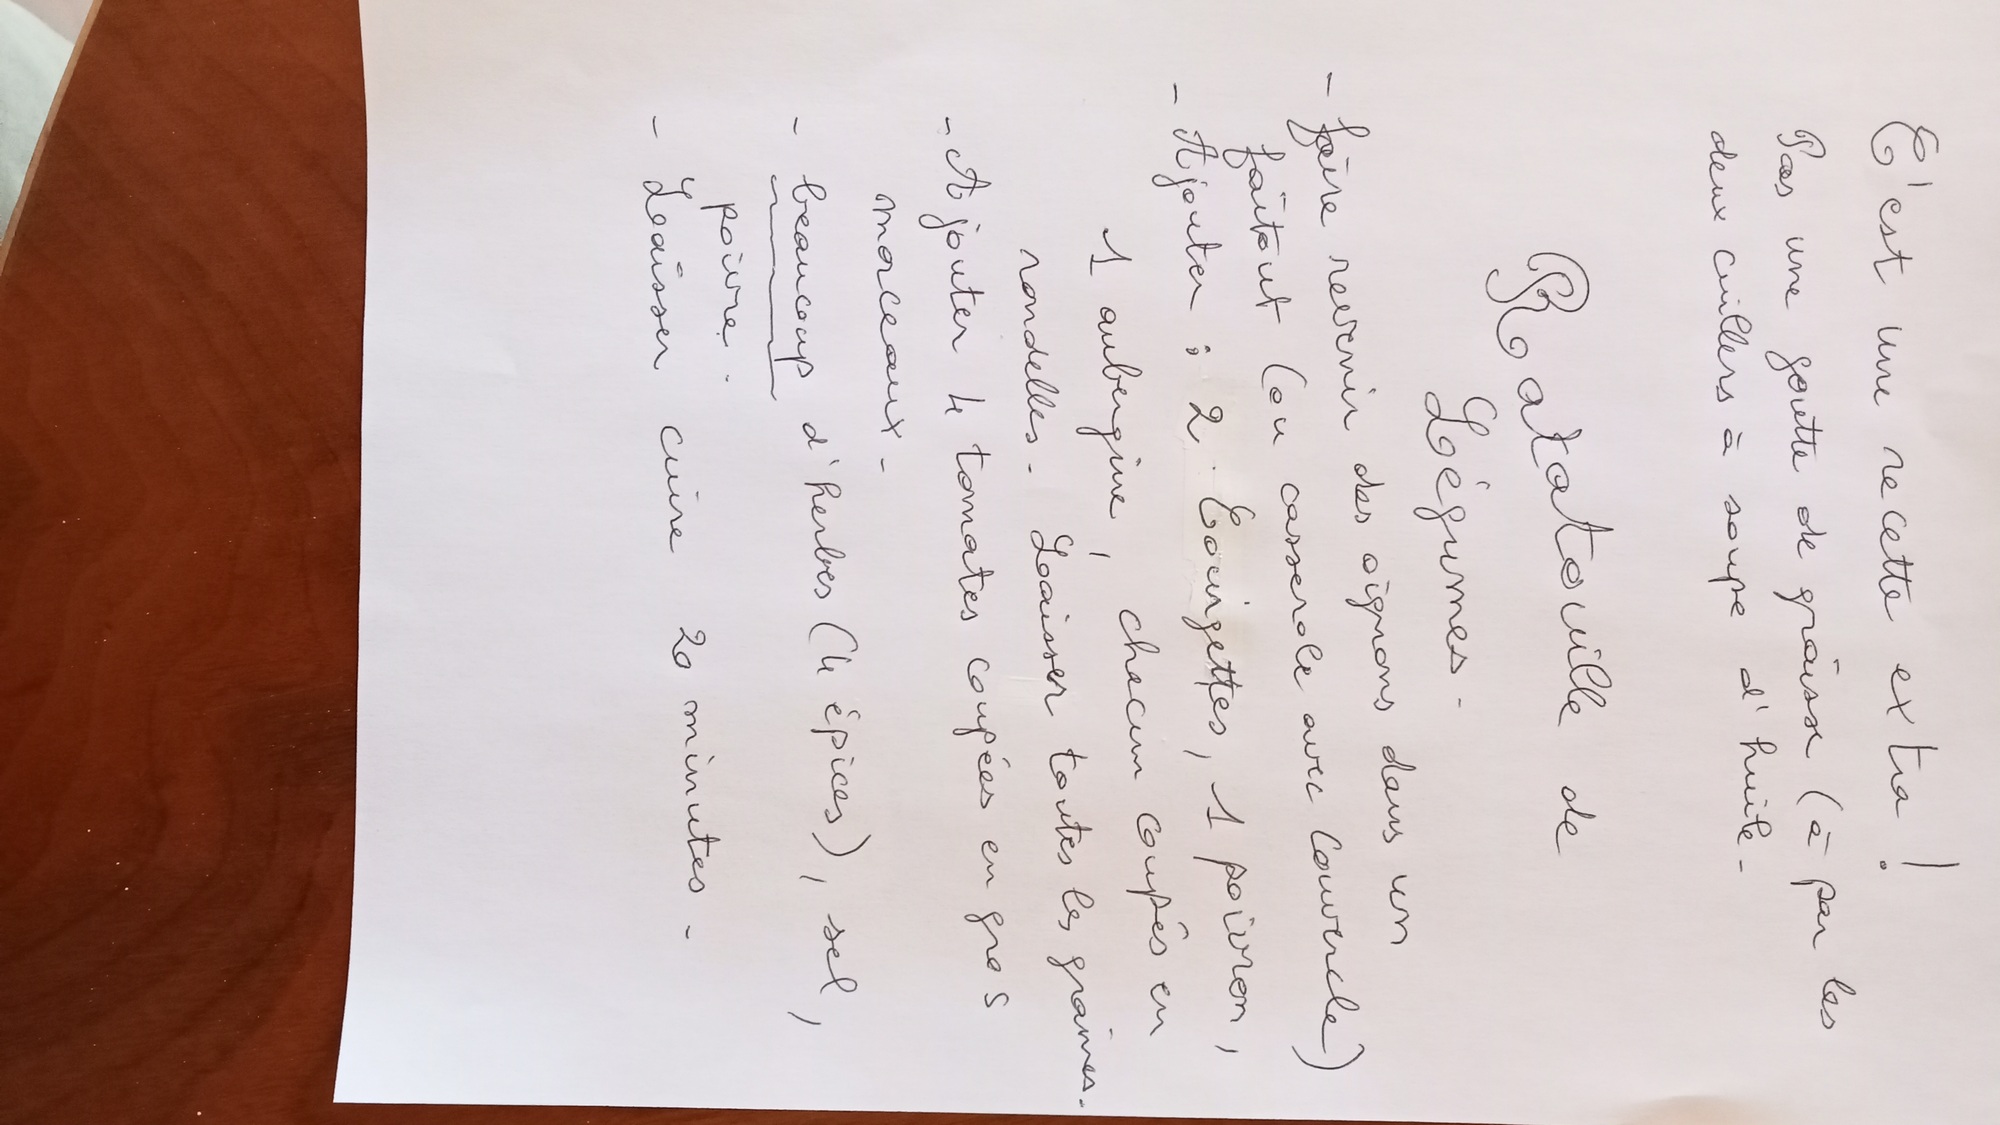 C'est une recette extra !
Pas une goutte de graisse (à par les
deux cuillers à soupe d'huile -
Ratatouille de
Légumes -
- faire revenir des oignons dans un
faitout (ou casserole avec couvercle)
- Ajouter : 2 Courgettes, 1 poivron,
1 aubergine, chacun coupés en
rondelles - Laisser toutes les graines.
- Ajouter 4 tomates coupées en gros
morceaux -
- beaucoup d'herbes (4 épices), sel,
poivre .
- Laisser cuire 20 minutes -